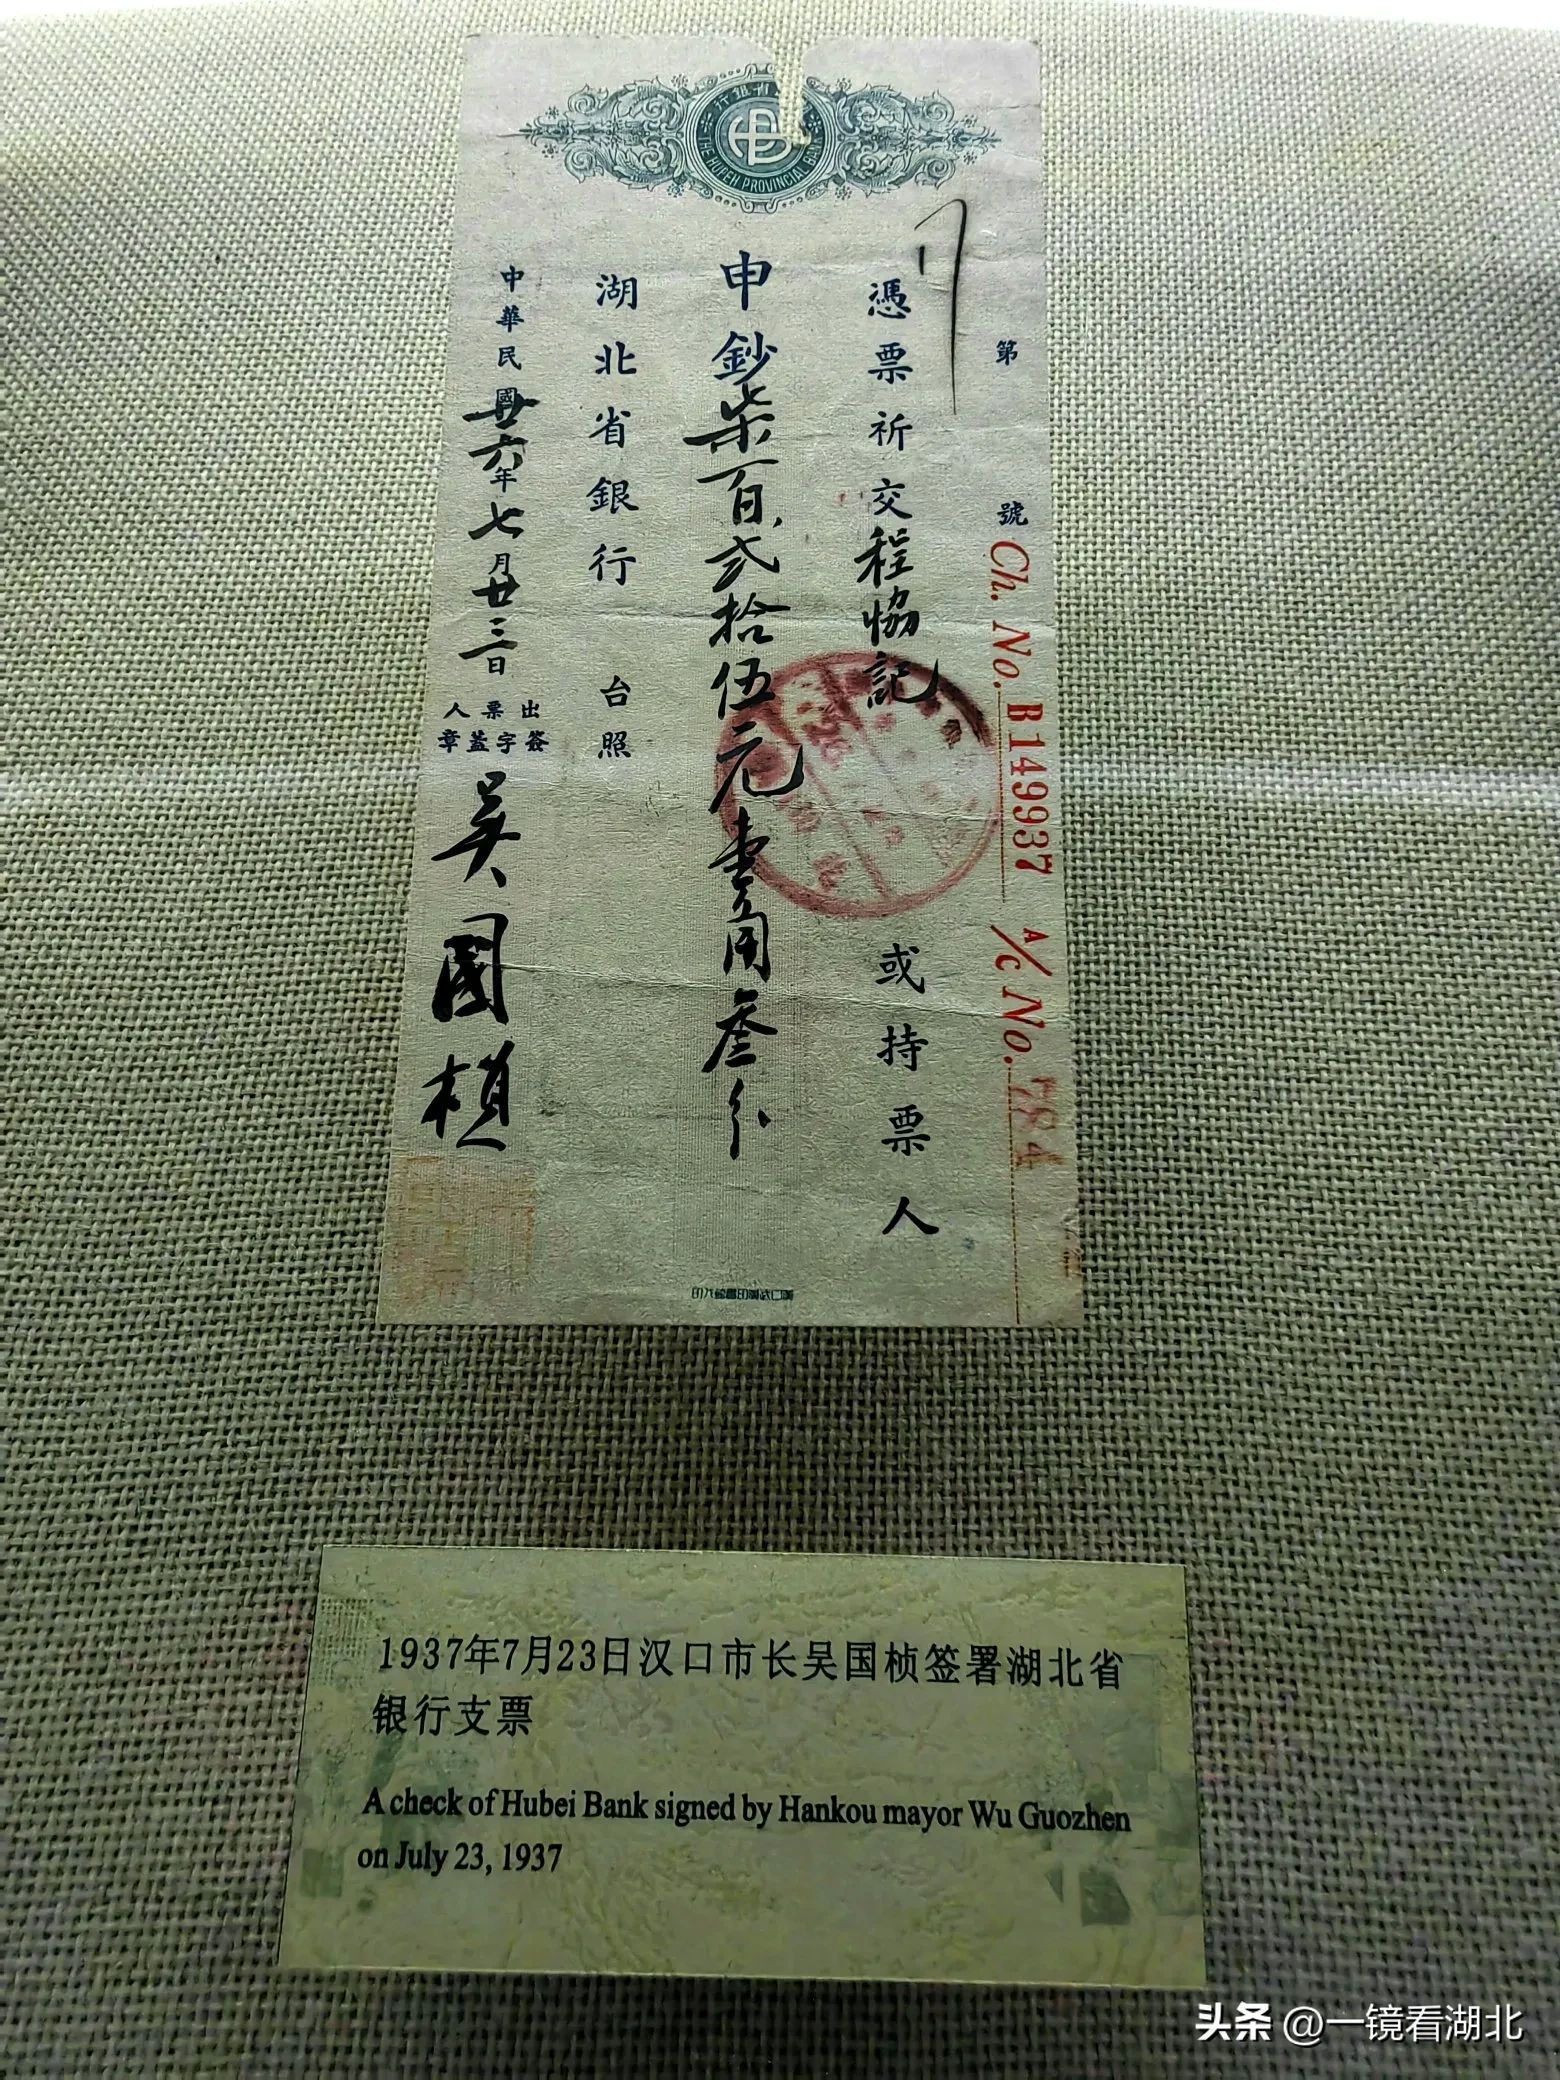 THE HUPEH PROVINCIAL BANK
第 號 Ch. No. B149937 A/C No. 784
憑票祈交程協記 或持票人
申鈔柒百貳拾伍元壹角叁分
湖北省銀行 台照
中華民國廿六年七月廿三日
出票人
簽字蓋章
吳國楨
1937年7月23日汉口市长吴国桢签署湖北省
银行支票
A check of Hubei Bank signed by Hankou mayor Wu Guozhen
on July 23, 1937
头条 @一镜看湖北